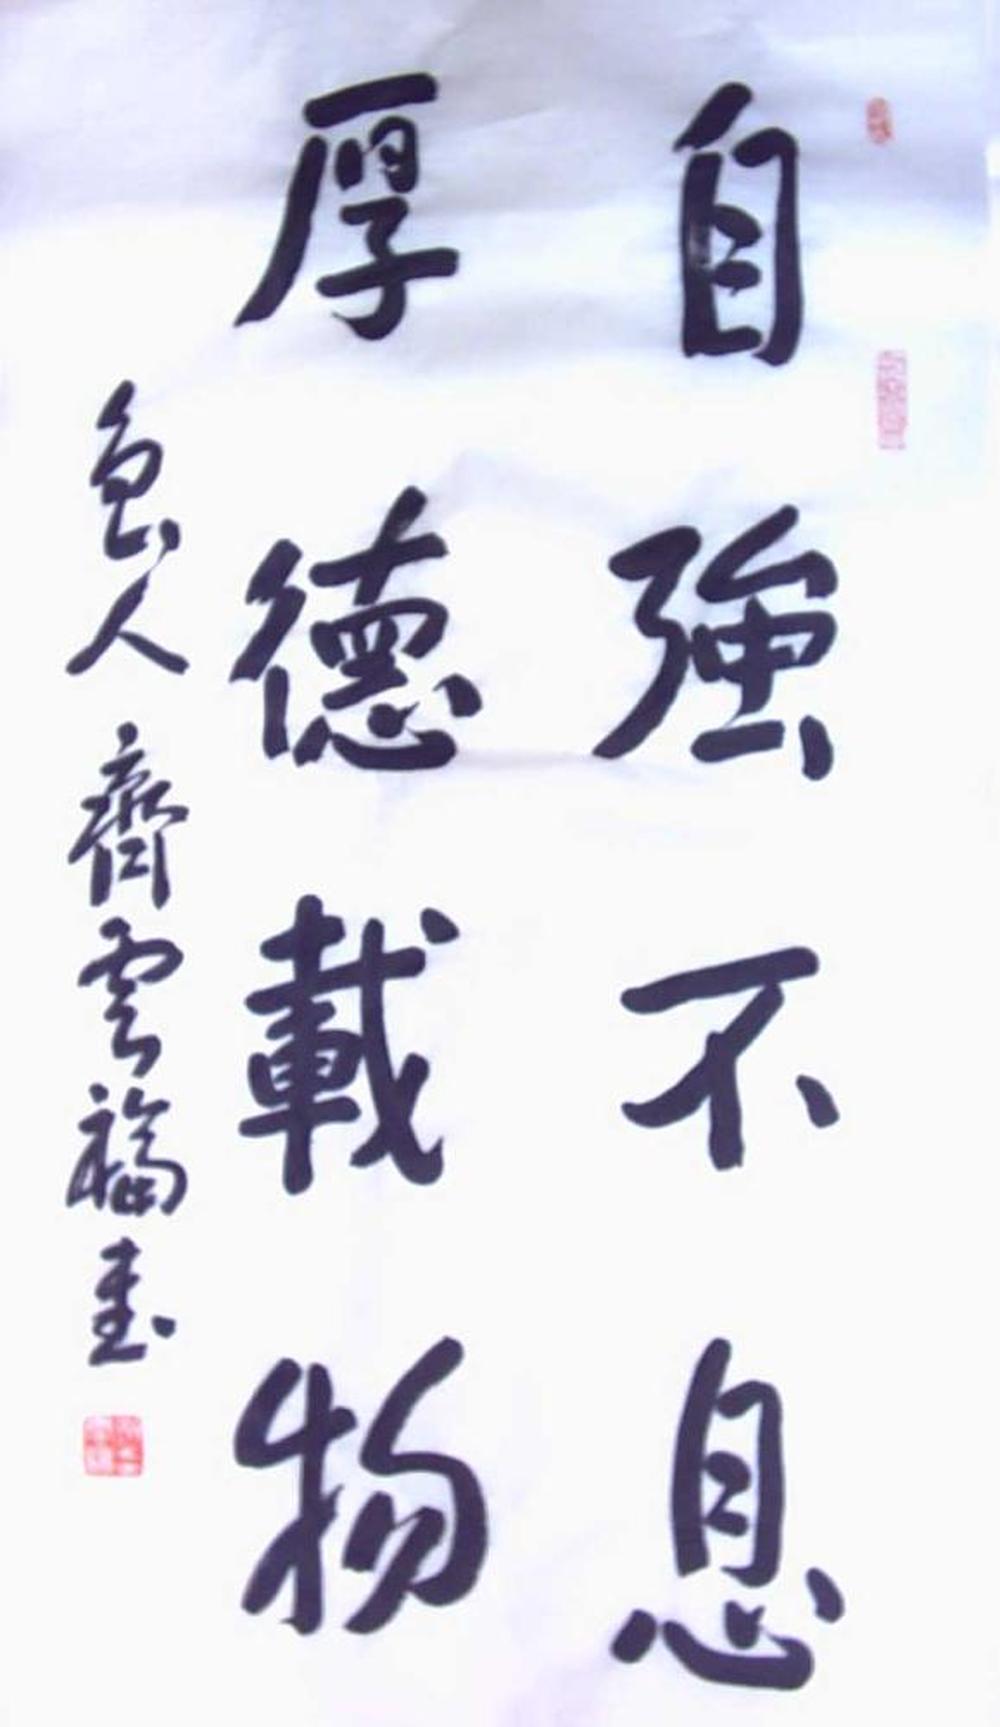 自強不息
厚德載物
魚人齊雲福書